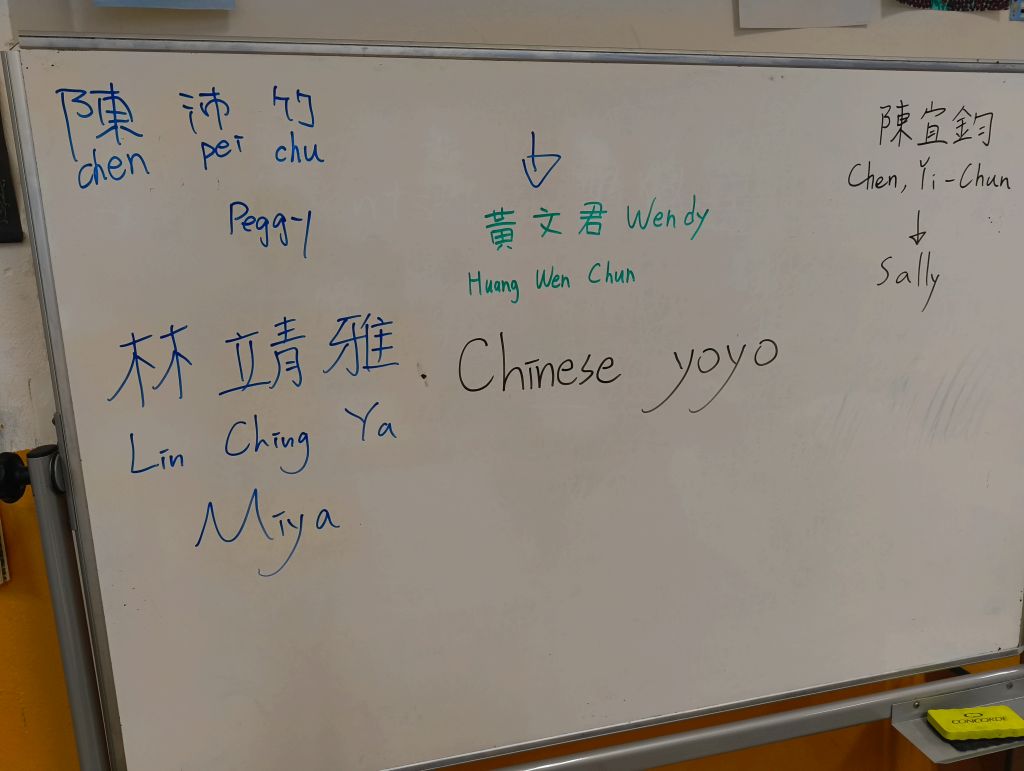 陳 沛 竹
chen pei chu
Peggy
黃 文 君 Wendy
Huang Wen Chun
陳宜鈞
Chen, Yi-Chun
Sally
林 靖 雅
Lin Ching Ya
Miya
Chinese yoyo
CONCORDE